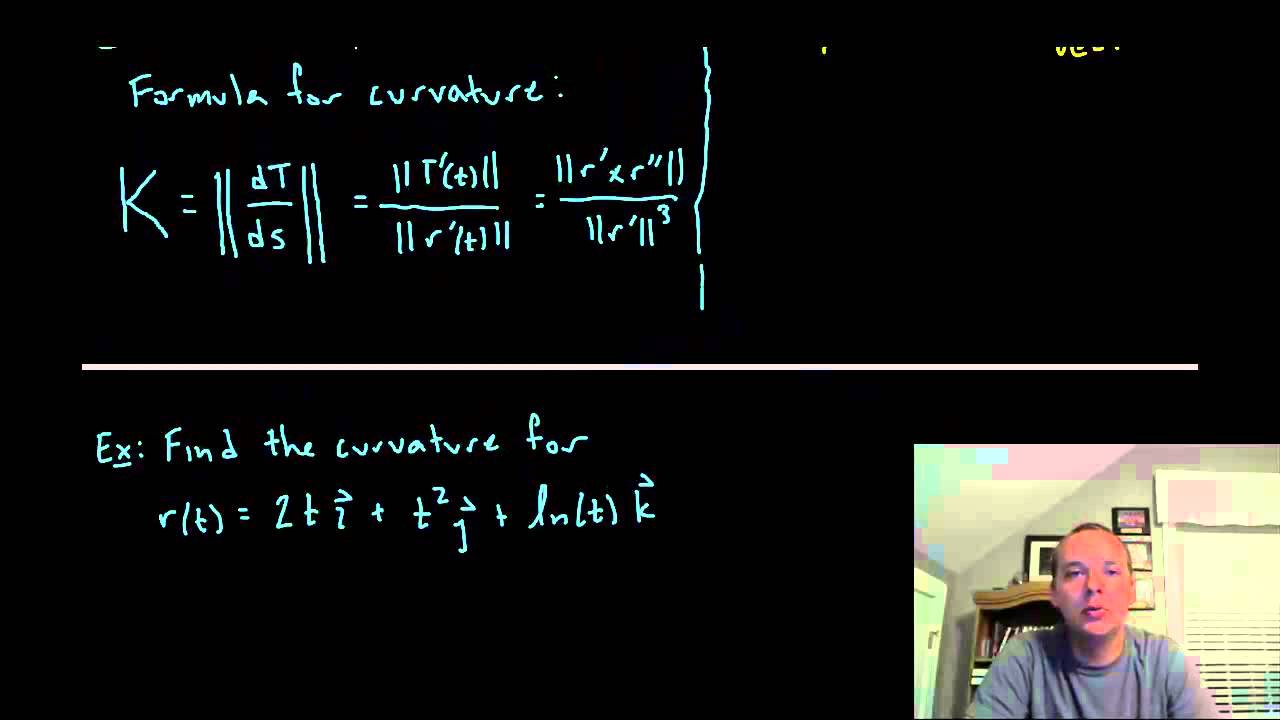 Formula for curvature:
K = ||dT/ds|| = ||T'(t)|| / ||r'(t)|| = ||r' x r''|| / ||r'||³
Ex: Find the curvature for
r(t) = 2t i⃗ + t² j⃗ + ln(t) k⃗